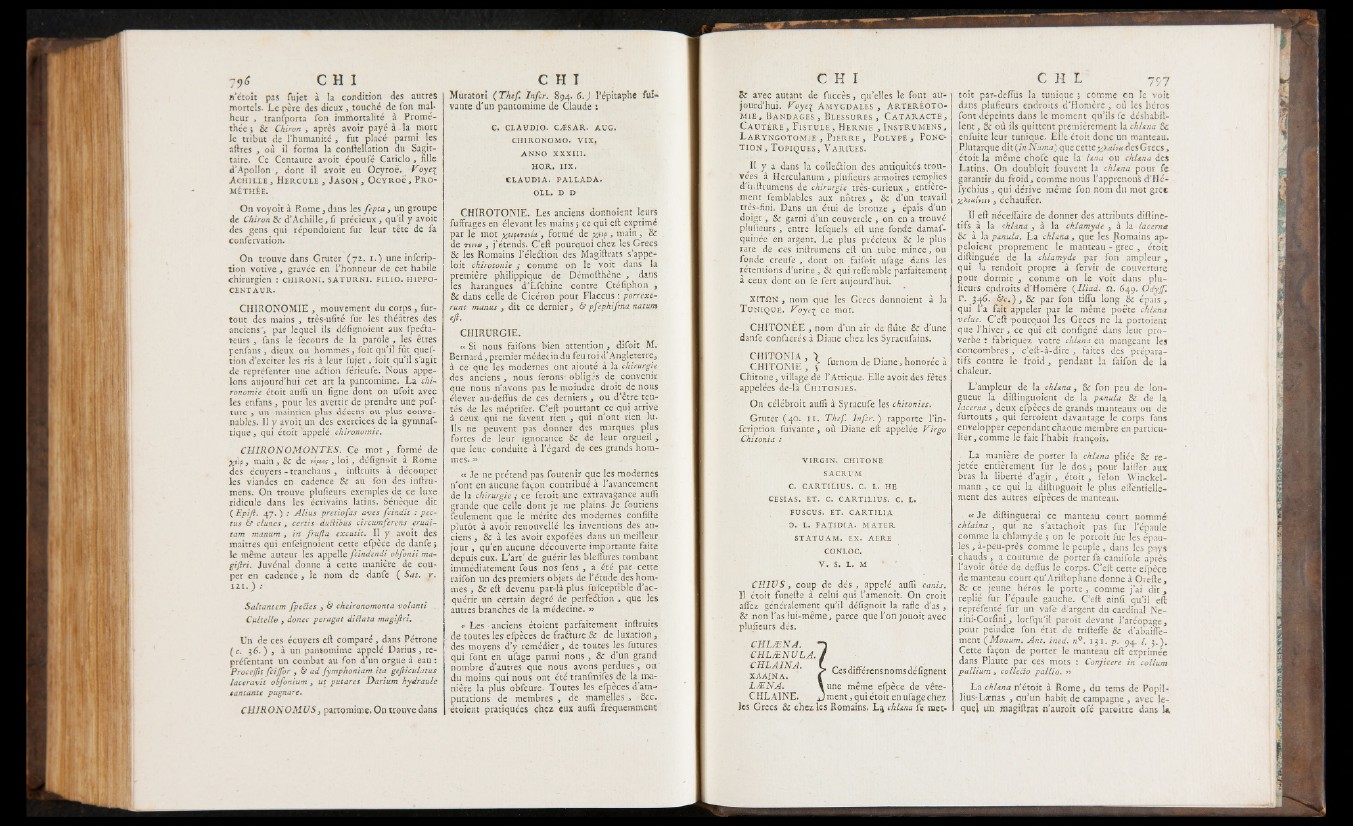 796 CHI
n'étoit pas ſujet à la condition des autres
mortels. Le père des dieux, touché de ſon mal-
heur, tranſporta ſon immortalité à Promé-
thée ; & Chiron, après avoir payé à la mort
le tribut de l'humanité, fut placé parmi les
aſtres, où il forma la conſtellation du Sagit-
taire. Ce Centaure avoit épouſé Cariclo, fille
d'Apollon, dont il avoit eu Ocyroë. Voyez
ACHILLE, HERCULE, JASON, OCYROÉ, PRO-
MÉTHÉE.
On voyoit à Rome, dans les ſepta, un groupe
de Chiron & d'Achille, ſi précieux, qu'il y avoit
des gens qui répondoient ſur leur tête de ſa
conſervation.
On trouve dans Gruter (72. 1.) une inſcrip-
tion votive, gravée en l'honneur de cet habile
chirurgien : CHIRONI. SATURNI. FILIO. HIPPO-
CENTAUR.
CHIRONOMIE, mouvement du corps, ſur-
tout des mains, très-uſité ſur les théâtres des
anciens, par lequel ils déſignoient aux ſpecta-
teurs, ſans le ſecours de la parole, les êtres
penſans, dieux ou hommes, ſoit qu'il fût queſ-
tion d'exciter les ris à leur ſujet, ſoit qu'il s'agît
de repréſenter une action ſérieuſe. Nous appe-
lons aujourd'hui cet art la pantomime. La chi-
ronomie étoit auſſi un ſigne dont on uſoit avec
les enfans, pour les avertir de prendre une poſ-
ture, un maintien plus décens ou plus conve-
nables. Il y avoit un des exercices de la gymnaſ-
tique, qui étoit appelé chironomie.
CHIRONOMONTES. Ce mot, formé de
χεὶρ, main, & de νόμος, loi, déſignoit à Rome
des écuyers-tranchans, inſtruits à découper
les viandes en cadence & au ſon des inſtru-
mens. On trouve pluſieurs exemples de ce luxe
ridicule dans les écrivains latins. Sénèque dit
(Epiſt. 47.) : Alius pretioſas aves ſcindit : pec-
tus & clunes, certis ductibus circumferens erudi-
tam manum, in fruſta excutit. Il y avoit des
maîtres qui enſeignoient cette eſpèce de danſe ;
le même auteur les appelle ſcindendi obſonii ma-
giſtri. Juvénal donne à cette manière de cou-
per en cadence, le nom de danſe (Sat. v.
121.) :
Saltantem ſpectes, & cheironomonta volanti
Cultello, donec peragat dictata magiſtri.
Un de ces écuyers eſt comparé, dans Pétrone
(c. 36.), à un pantomime appelé Darius, re-
préſentant un combat au ſon d'un orgue à eau :
Proceſſit ſciſſor, & ad ſymphoniam ita geſticulatus
laceravit obſonium, ut putares Darium hydraule
cantante pugnare.
CHIRONOMUS, pantomime. On trouve dans
CHI
Muratori (Theſ. Inſcr. 894. 6.) l'épitaphe ſui-
vante d'un pantomime de Claude :
C. CLAUDIO. CÆSAR. AUG.
CHIRONOMO. VIX.
ANNO XXXIII.
HOR. IIX.
CLAUDIA. PALLADA.
OLL. D D
CHIROTONIE. Les anciens donnoient leurs
ſuffrages en élevant les mains ; ce qui eſt exprimé
par le mot χειροτονία, formé de χεὶρ, main, &
de τείνω, j'étends. C'eſt pourquoi chez les Grecs
& les Romains l'élection des Magiſtrats s'appe-
loit chirotonie ; comme on le voit dans la
première philippique de Démoſthène, dans
les harangues d'Eſchine contre Ctéſiphon,
& dans celle de Cicéron pour Flaccus : porrexe-
runt manus, dit ce dernier, & pſephiſma natum
eſt.
CHIRURGIE.
« Si nous faiſons bien attention, diſoit M.
Bernard, premier médecin du feu roi d'Angleterre,
à ce que les modernes ont ajouté à la chirurgie
des anciens, nous ſerons obligés de convenir
que nous n'avons pas le moindre droit de nous
élever au-deſſus de ces derniers, ou d'être ten-
tés de les mépriſer. C'eſt pourtant ce qui arrive
à ceux qui ne ſavent rien, qui n'ont rien lu.
Ils ne peuvent pas donner des marques plus
fortes de leur ignorance & de leur orgueil,
que leur conduite à l'égard de ces grands hom-
mes. »
« Je ne prétend pas ſoutenir que les modernes
n'ont en aucune façon contribué à l'avancement
de la chirurgie ; ce ſeroit une extravagance auſſi
grande que celle dont je me plains. Je ſoutiens
ſeulement que le mérite des modernes conſiſte
plutôt à avoir renouvellé les inventions des an-
ciens, & à les avoir expoſées dans un meilleur
jour, qu'en aucune découverte importante faite
depuis eux. L'art de guérir les bleſſures tombant
immédiatement ſous nos ſens, a été par cette
raiſon un des premiers objets de l'étude des hom-
mes, & eſt devenu par-là plus ſuſceptible d'ac-
quérir un certain degré de perfection, que les
autres branches de la médecine. »
» Les anciens étoient parfaitement inſtruits
de toutes les eſpèces de fracture & de luxation,
des moyens d'y remédier, de toutes les ſutures
qui ſont en uſage parmi nous, & d'un grand
nombre d'autres que nous avons perdues, ou
du moins qui nous ont été tranſmiſes de la ma-
nière la plus obſcure. Toutes les eſpèces d'am-
putations de membres, de mamelles, &c.
étoient pratiquées chez eux auſſi fréquemment
CHI
& avec autant de ſuccès, qu'elles le ſont au-
jourd'hui. Voyez AMYGDALES, ARTÉRÉOTO-
MIE, BANDAGES, BLESSURES, CATARACTE,
CAUTÈRE, FISTULE, HERNIE, INSTRUMENS,
LARYNGOTOMIE, PIERRE, POLYPE, PONC-
TION, TOPIQUES, VARICES.
Il y a dans la collection des antiquités trou-
vées à Herculanum, pluſieurs armoires remplies
d'inſtrumens de chirurgie très-curieux, entière-
ment ſemblables aux nôtres, & d'un travail
très-fini. Dans un étui de bronze, épais d'un
doigt, & garni d'un couvercle, on en a trouvé
pluſieurs, entre leſquels eſt une ſonde damaſ-
quinée en argent. Le plus précieux & le plus
rare de ces inſtrumens eſt un tube mince, ou
ſonde creuſe, dont on faiſoit uſage dans les
rétentions d'urine, & qui reſſemble parfaitement
à ceux dont on ſe ſert aujourd'hui.
ΧΙΤΩΝ, nom que les Grecs donnoient à la
TUNIQUE. Voyez ce mot.
CHITONÉE, nom d'un air de flûte & d'une
danſe conſacrés à Diane chez les Syracuſains.
CHITONIA, } ſurnom de Diane, honorée à
CHITONIE, }
Chitone, village de l'Attique. Elle avoit des fêtes
appelées de-là CHITONIES.
On célébroit auſſi à Syracuſe les chitonies.
Gruter (40. 11. Theſ. Inſcr.) rapporte l'in-
ſcription ſuivante, où Diane eſt appelée Virgo
Chitonia :
VIRGIN. CHITONE
SACRUM
C. CARTILIUS. C. L. HE
CESIAS. ET. C. CARTILIUS. C. L.
FUSCUS. ET. CARTILIA
D. L. FATIDIA. MATER
STATUAM. EX. AERE
CONLOC.
V. S. L. M
CHIUS, coup de dés, appelé auſſi canis.
Il étoit funeſte à celui qui l'amenoit. On croit
aſſez généralement qu'il déſignoit la rafle d'as,
& non l'as lui-même, parce que l'on jouoit avec
pluſieurs dés.
CHLÆNA.
CHLÆNULA.
CHLAINA.
ΧΛΑΙΝΑ.
LÆNA.
CHLAINE.
Ces différens noms déſignent
une même eſpèce de vête-
ment, qui étoit en uſage chez
les Grecs & chez les Romains. La chlæna ſe met-
CHL 797
toit par-deſſus la tunique ; comme on le voit
dans pluſieurs endroits d'Homère, où les héros
ſont dépeints dans le moment qu'ils ſe déshabil-
lent, & où ils quittent premièrement la chlæna &
enſuite leur tunique. Elle étoit donc un manteau.
Plutarque dit (In Numa) que cette χλαῖνα des Grecs,
étoit la même choſe que la læna ou chlæna des
Latins. On doubloit ſouvent la chlæna pour ſe
garantir du froid, comme nous l'apprenons d'Hé-
ſychius, qui dérive même ſon nom du mot grec
χλιαίνειν, échauffer.
Il eſt néceſſaire de donner des attributs diſtinc-
tifs à la chlæna, à la chlamyde, à la lacerna
& à la pænula. La chlæna, que les Romains ap-
peloient proprement le manteau-grec, étoit
diſtinguée de la chlamyde par ſon ampleur,
qui la rendoit propre à ſervir de couverture
pour dormir, comme on le voit dans plu-
ſieurs endroits d'Homère (Iliad. Ω. 649. Odyſſ.
Υ. 346. &c.), & par ſon tiſſu long & épais,
qui l'a fait appeler par le même poëte chlæna
velue. C'eſt pourquoi les Grecs ne la portoient
que l'hiver, ce qui eſt conſigné dans leur pro-
verbe : fabriquez votre chlæna en mangeant les
concombres, c'eſt-à-dire, faites des prépara-
tifs contre le froid, pendant la ſaiſon de la
chaleur.
L'ampleur de la chlæna, & ſon peu de lon-
gueur la diſtinguoient de la pænula & de la
lacerna, deux eſpèces de grands manteaux ou de
ſurtouts, qui ſerroient davantage le corps ſans
envelopper cependant chaque membre en particu-
lier, comme le fait l'habit françois.
La manière de porter la chlæna pliée & re-
jetée entièrement ſur le dos, pour laiſſer aux
bras la liberté d'agir, étoit, ſelon Winckel-
mann, ce qui la diſtinguoit le plus eſſentielle-
ment des autres eſpèces de manteau.
« Je diſtinguerai ce manteau court nommé
chlaina, qui ne s'attachoit pas ſur l'épaule
comme la chlamyde ; on le portoit ſur les épau-
les, à-peu-près comme le peuple, dans les pays
chauds, a coutume de porter ſa camiſole après
l'avoir ôtée de deſſus le corps. C'eſt cette eſpèce
de manteau court qu'Ariſtophane donne à Oreſte,
& ce jeune héros le porte, comme j'ai dit,
replié ſur l'épaule gauche. C'eſt ainſi qu'il eſt
repréſenté ſur un vaſe d'argent du cardinal Ne-
rini-Corſini, lorſqu'il paroît devant l'aréopage,
pour peindre ſon état de triſteſſe & d'abaiſſe-
ment (Monum. Ant. ined. n°. 131. p. 94. l. 3.).
Cette façon de porter le manteau eſt exprimée
dans Plaute par ces mots : Conjicere in collum
pallium, collecto pallio. »
La chlæna n'étoit à Rome, du tems de Popil-
lius-Lænas, qu'un habit de campagne, avec le-
quel un magiſtrat n'auroit oſé paroître dans la